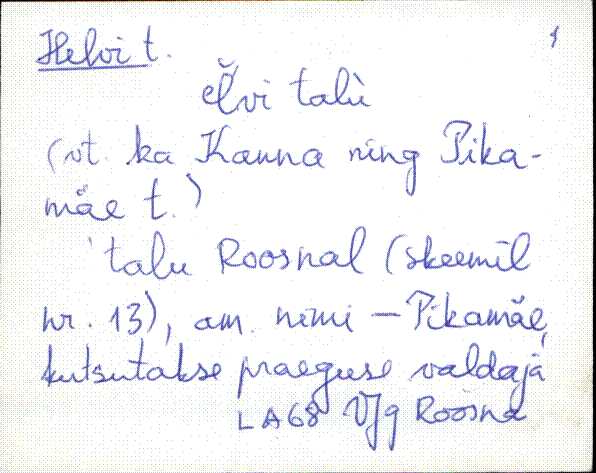 Helvi t. 1
elvi talù
(vt. ka Kanna ning Pika-
mäe t.)
'talu Roosnal (skeemil
nr. 13), am. nimi – Pikamäe,
kutsutakse praeguse valdaja
LA68 Vjg Roosna